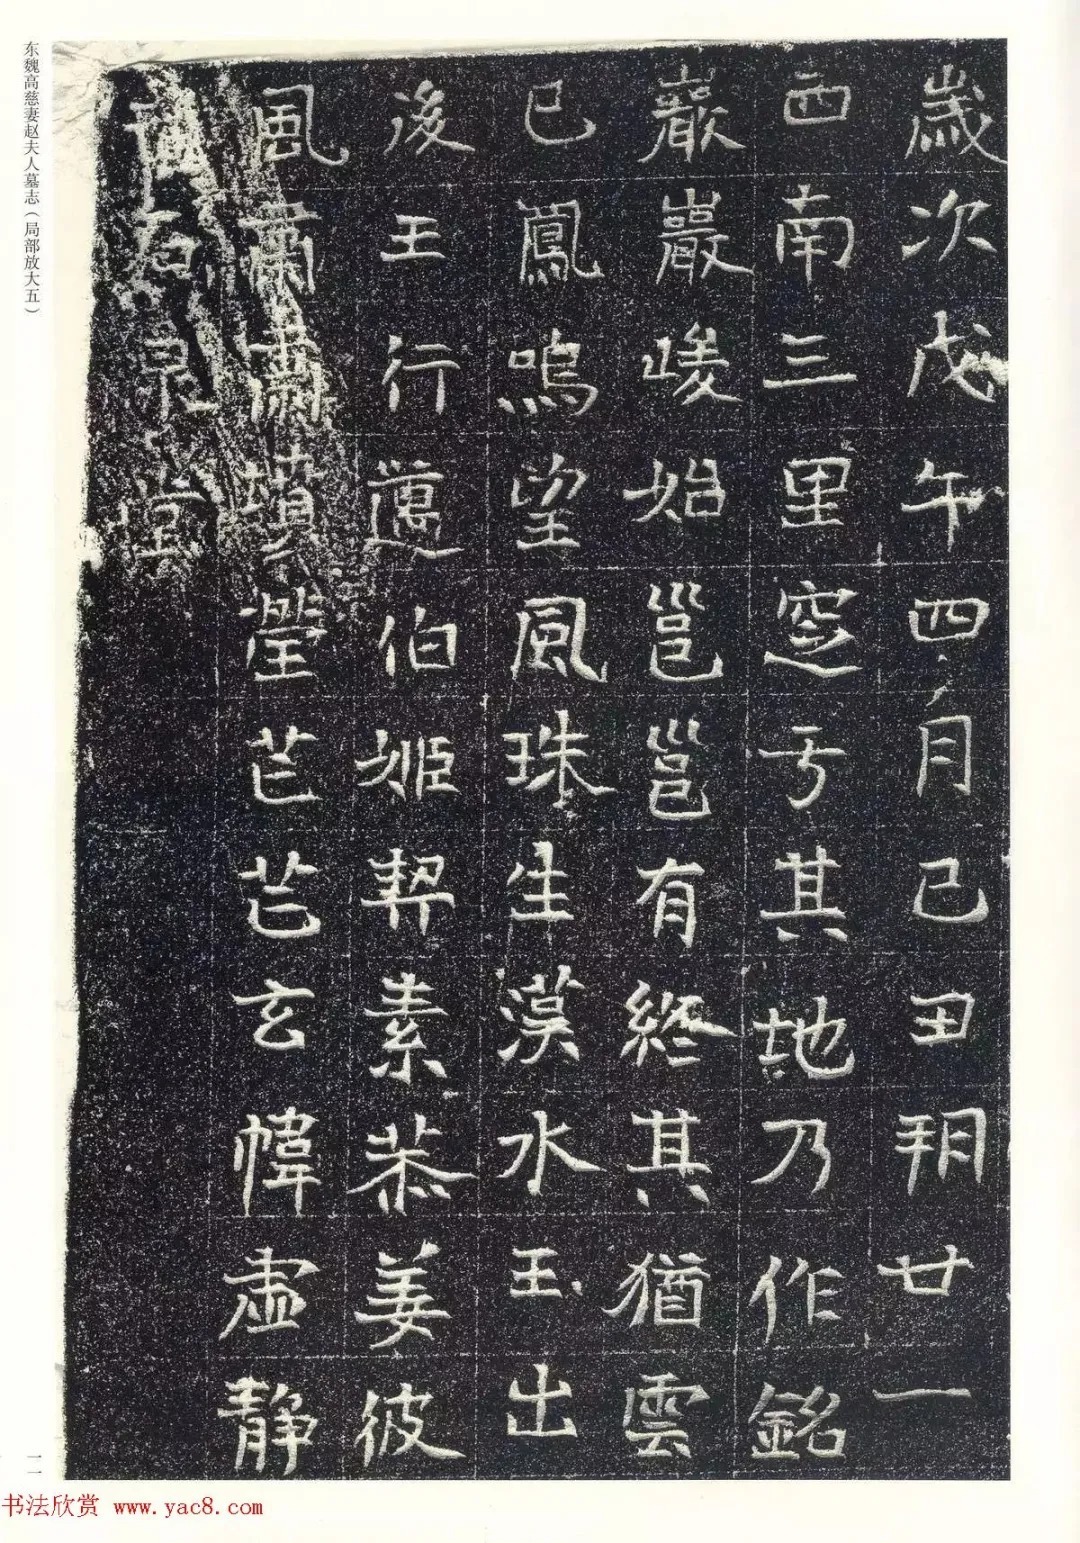 歲次戊午四月己丑朔廿一
西南三里窆于其地乃作銘
巖巖峻始邕邕有終其猶雲
已鳳鳴望風珠生漢水玉出
後王行邁伯姬契素恭姜彼
風肅肅墳塋芒芒玄幃虛靜
石泉堂
东魏高慈妻赵夫人墓志(局部放大五)
一一
书法欣赏 www.yac8.com